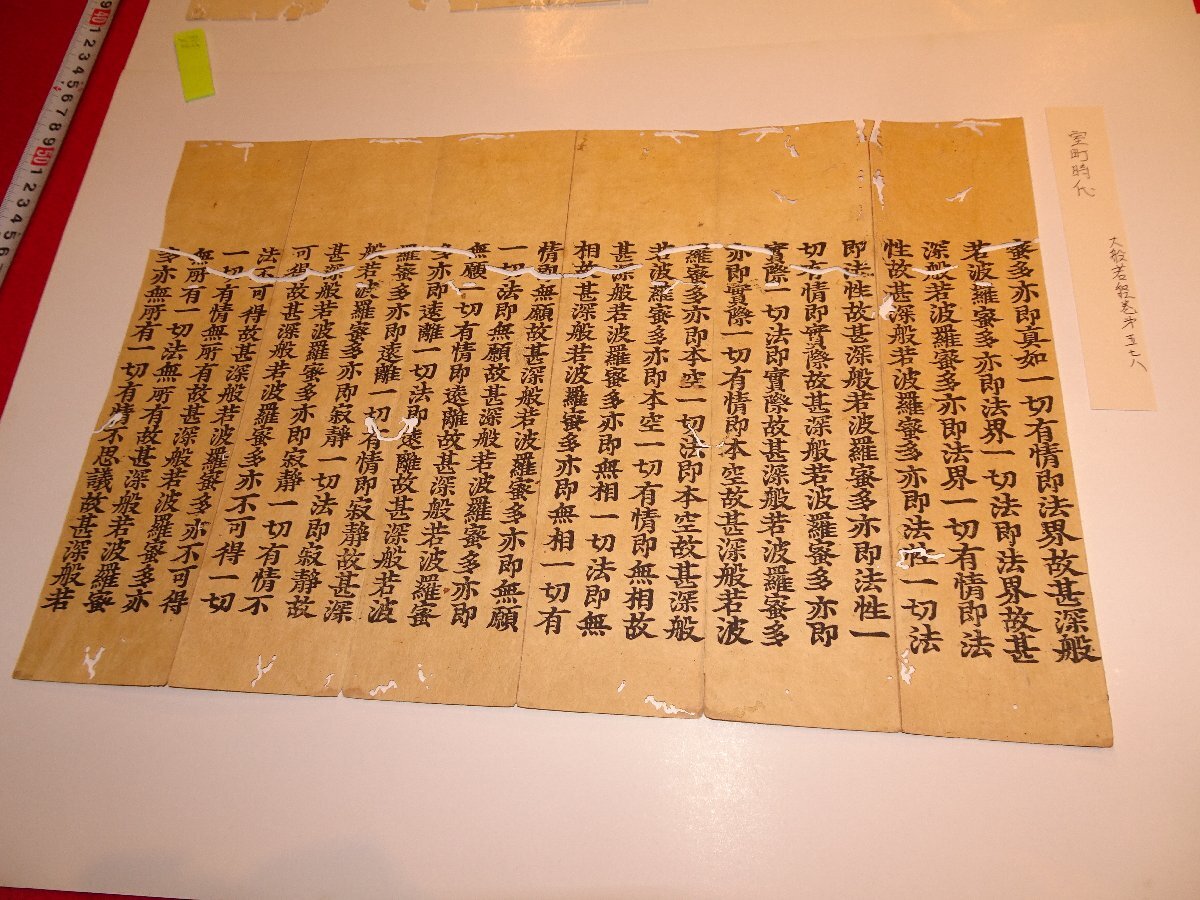 室町時代
大般若経巻第五七八
蜜多亦即真如一切有情即法界故甚深般
若波羅蜜多亦即法界一切法即法界故甚
深般若波羅蜜多亦即法界一切有情即法
性故甚深般若波羅蜜多亦即法性一切法
即法性故甚深般若波羅蜜多亦即法性一
切有情即實際故甚深般若波羅蜜多亦即
實際一切法即實際故甚深般若波羅蜜多
亦即實際一切有情即本空故甚深般若波
羅蜜多亦即本空一切法即本空故甚深般
若波羅蜜多亦即本空一切有情即無相故
甚深般若波羅蜜多亦即無相一切法即無
相故甚深般若波羅蜜多亦即無相一切有
情即無願故甚深般若波羅蜜多亦即無願
一切法即無願故甚深般若波羅蜜多亦即
無願一切有情即遠離故甚深般若波羅蜜
多亦即遠離一切法即遠離故甚深般若波
羅蜜多亦即遠離一切有情即寂静故甚深
般若波羅蜜多亦即寂静一切法即寂静故
甚深般若波羅蜜多亦即寂静一切有情不
可得故甚深般若波羅蜜多亦不可得一切
法不可得故甚深般若波羅蜜多亦不可得
一切有情無所有故甚深般若波羅蜜多亦
無所有一切法無所有故甚深般若波羅蜜
多亦無所有一切有情不思議故甚深般若
40 1 2 3 4 5 6 7 8 9 50 1 2 3 4 5 6